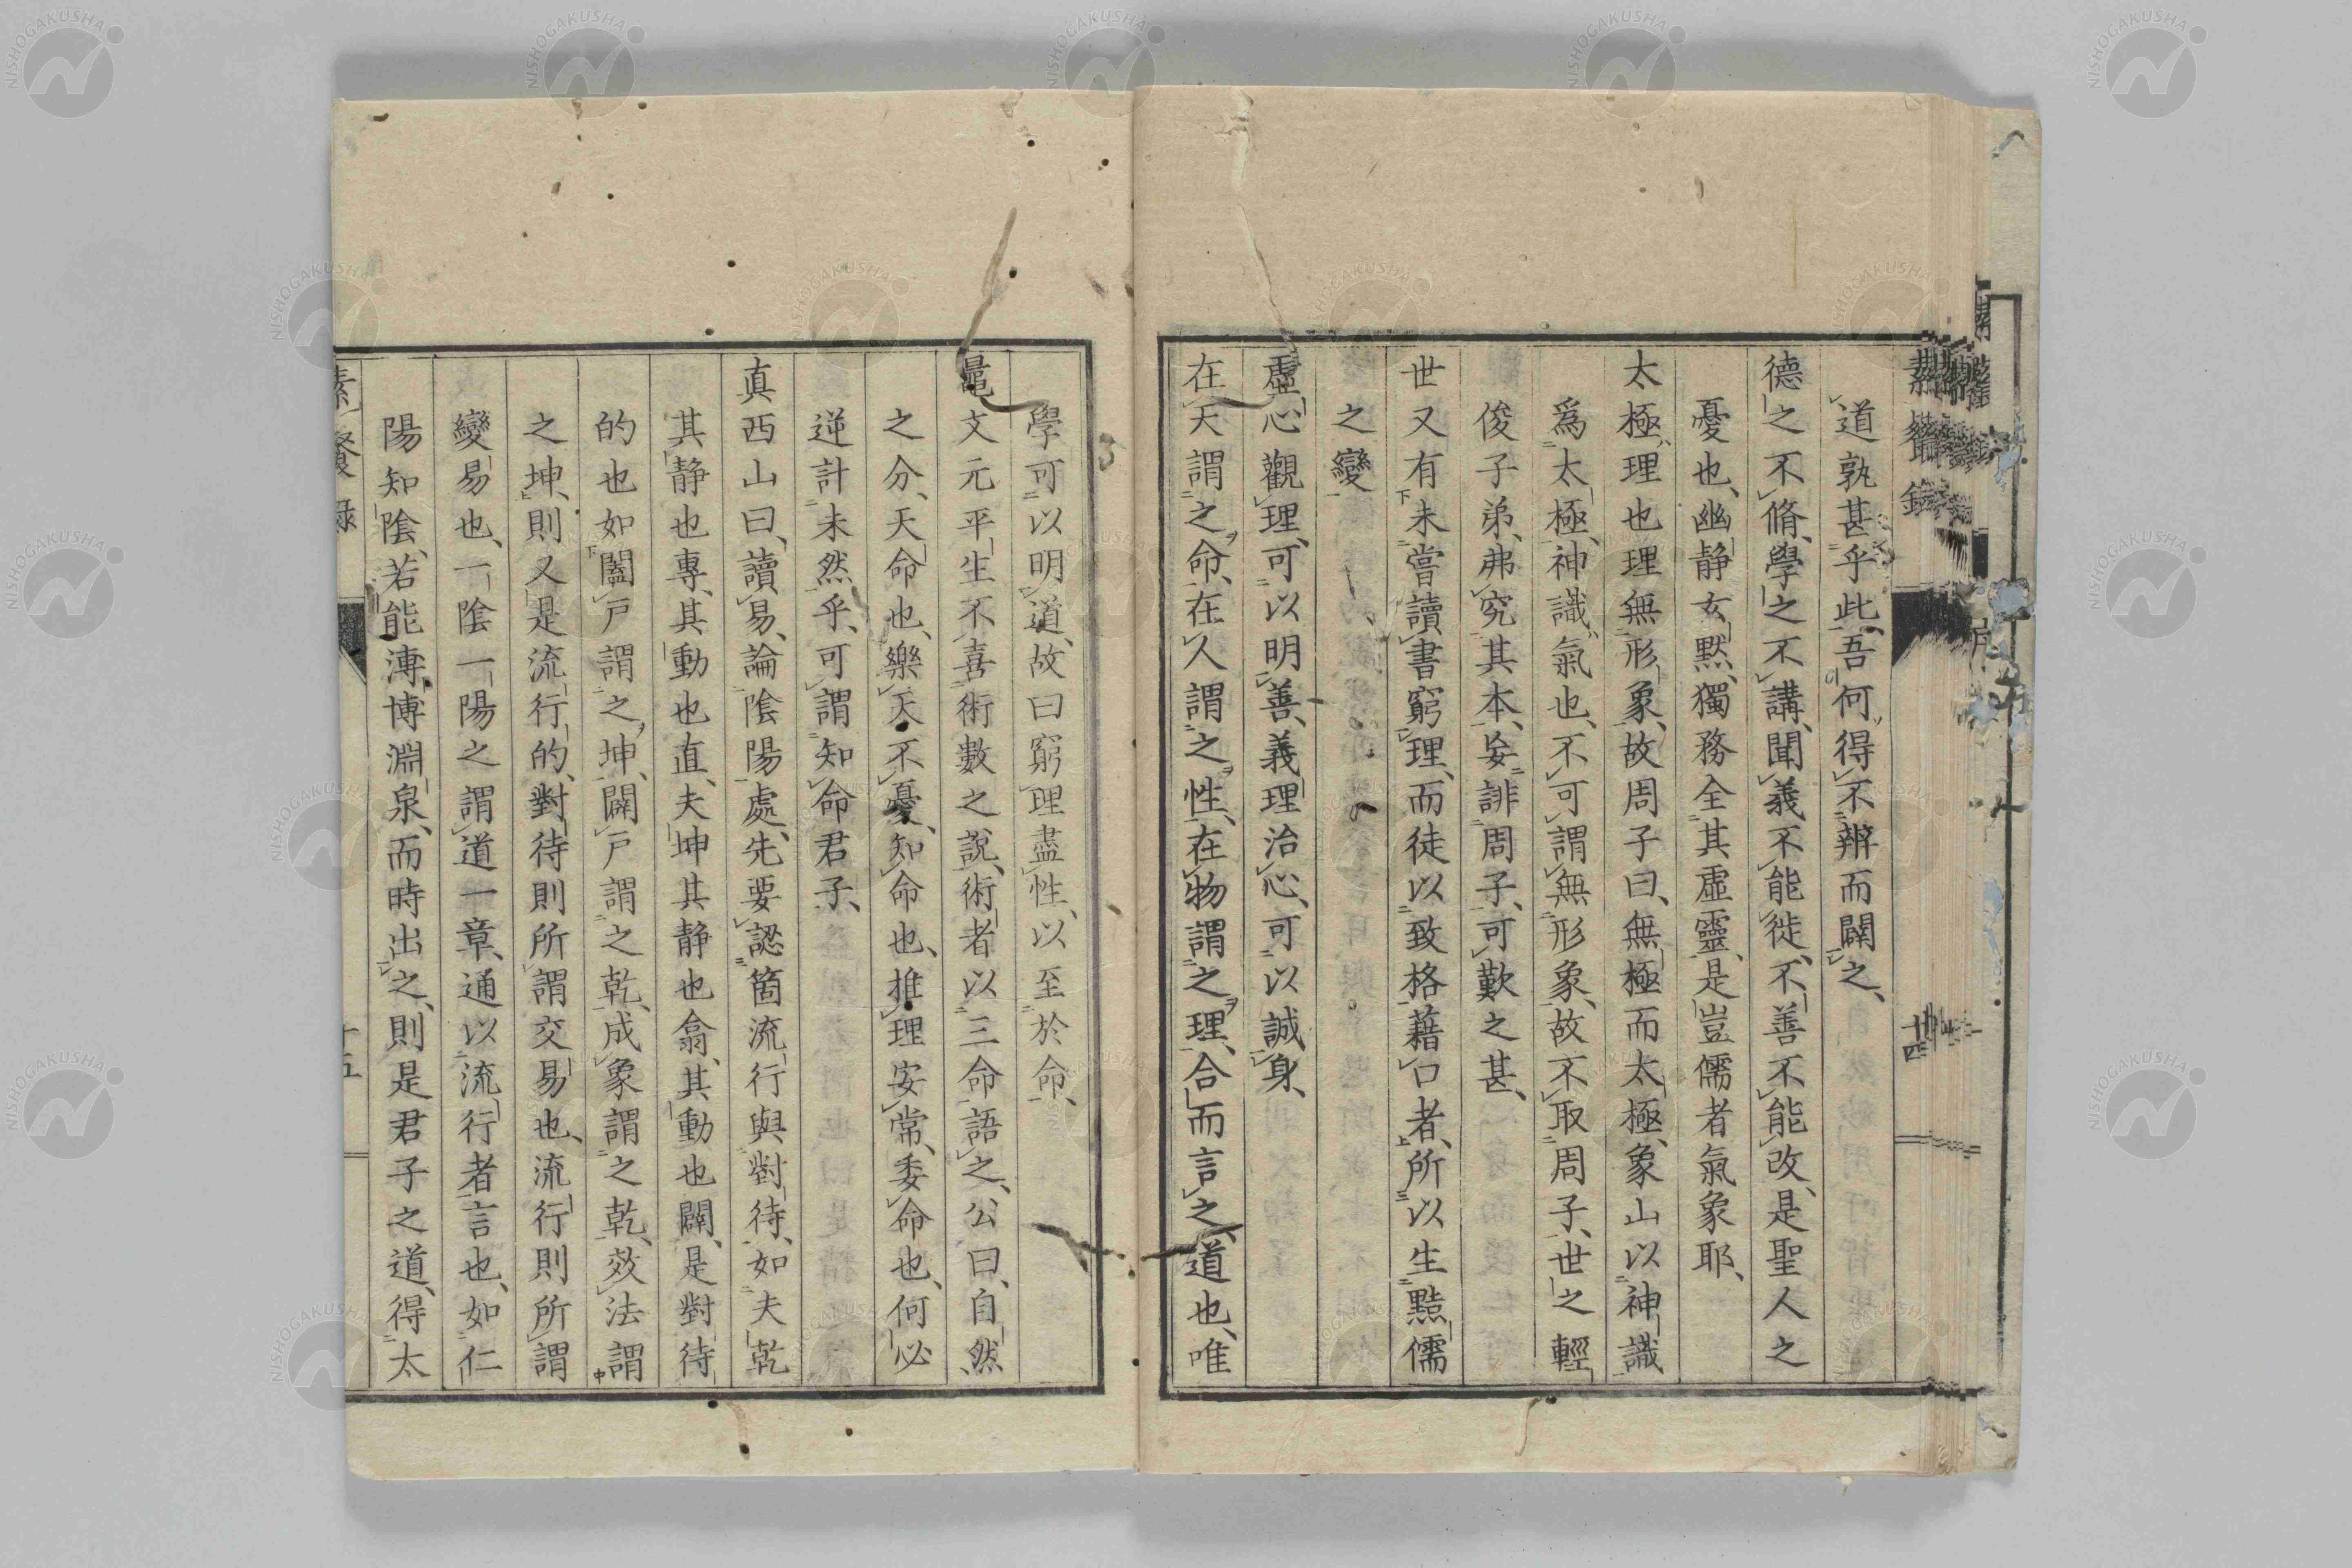 道孰甚乎此、吾何得不辨而闢之、
德之不脩、學之不講、聞義不能徙、不善不能改、是聖人之
憂也、幽静玄默、獨務全其虛靈、是豈儒者氣象耶、
太極、理也理無形象、故周子曰、無極而太極、象山以神識
爲太極、神識氣也、不可謂無形象、故不取周子、世之輕
俊子弟、弗究其本、妄誹周子、可歎之甚、
世又有未嘗讀書窮理、而徒以致格藉口者、所以生黠儒
之變
虛心觀理、可以明善、義理治心、可以誠身、
在天謂之命、在人謂之性、在物謂之理、合而言之、道也、唯
學可以明道、故曰窮理盡性、以至於命、
鼂文元平生不喜術數之說、術者以三命語之、公曰、自然
之分、天命也、樂天不憂、知命也、推理安常、委命也、何必
逆計未然乎、可謂知命君子、
真西山曰、讀易、論陰陽處、先要認箇流行與對待、如夫乾
其静也專、其動也直、夫坤其静也翕、其動也闢、是對待
的也如闔戸謂之坤、闢戸謂之乾、成象謂之乾、效法謂
之坤、則又是流行的、對待則所謂交易也、流行則所謂
變易也、一陰一陽之謂道一章、通以流行者言也、如仁
陽知陰、若能溥博淵泉、而時出之、則是君子之道、得太
素餐録
十五
NISHOGAKUSHA